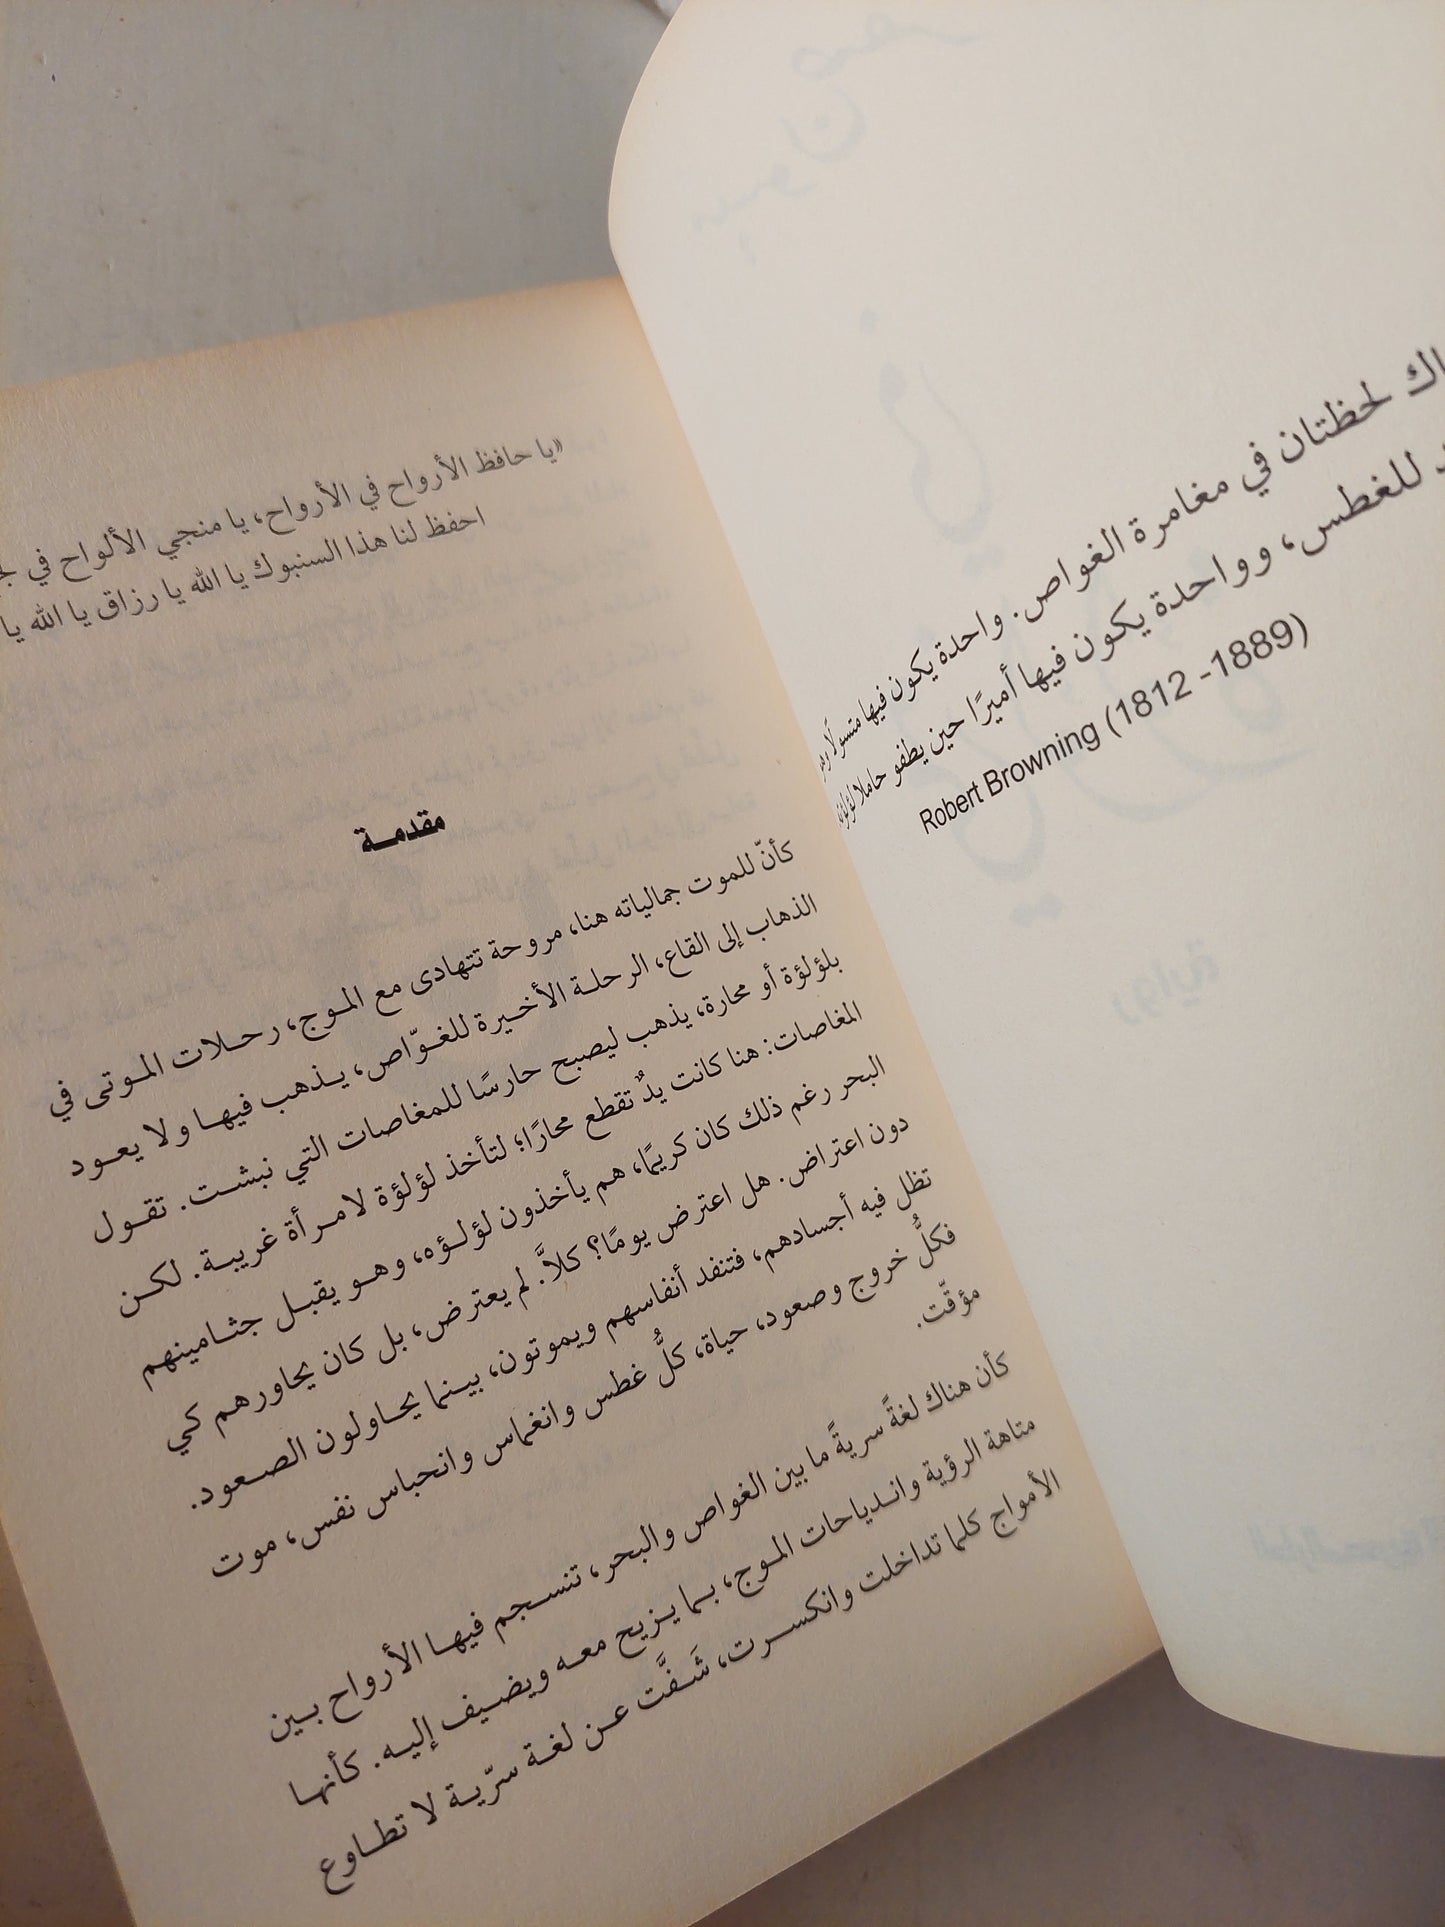 لحظتان في مغامرة الغواص. واحدة يكون فيها متسولًا
للغطس، وواحدة يكون فيها أميرًا حين يطفو حاملا
Robert Browning (1812 -1889)
«يا حافظ الأرواح في الأرواح، يا منجي الألواح في
احفظ لنا هذا السنبوك يا الله يا رزاق يا الله يا
مقدمــة
كأنّ للموت جمالياته هنا، مروحة تتهادى مع الموج، رحلات الموتى في
الذهاب إلى القاع، الرحلة الأخيرة للغوّاص، يذهب فيها ولا يعود
بلؤلؤة أو محارة، يذهب ليصبح حارسًا للمغاصات التي نبشت. تقول
المغاصات: هنا كانت يدٌ تقطع محارًا؛ لتأخذ لؤلؤة لامرأة غريبة. لكن
البحر رغم ذلك كان كريمًا، هم يأخذون لؤلؤه، وهو يقبل جثامينهم
دون اعتراض. هل اعترض يومًا؟ كلاَّ. لم يعترض، بل كان يحاورهم كي
تظل فيه أجسادهم، فتنفد أنفاسهم ويموتون، بينما يحاولون الصعود.
فكلُّ خروج وصعود، حياة، كلُّ غطس وانغماس وانحباس نفس، موت
مؤقّت.
كأن هناك لغةً سريةً ما بين الغواص والبحر، تنسجم فيها الأرواح بين
متاهة الرؤية واندياحات الموج، بما يزيح معه ويضيف إليه. كأنها
الأمواج كلما تداخلت وانكسرت، شَفَّت عن لغة سرّية لا تطاوع
رواية